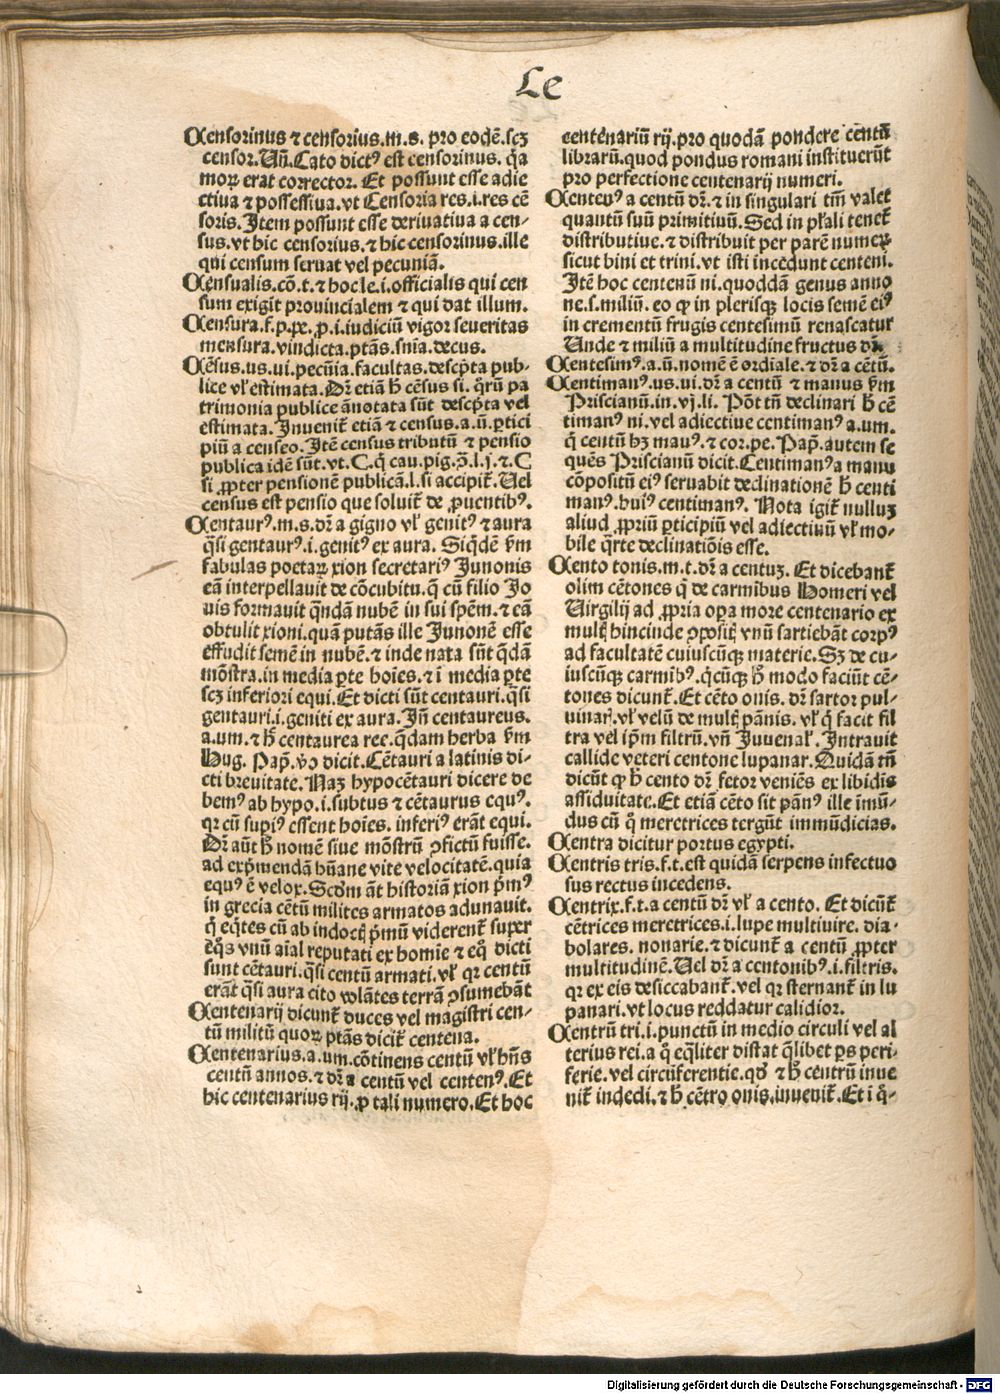 Ce
Censorinus ⁊ censorius.m.s. pro eodē.scꝫ
censor.Uñ.Cato dictꝰ est censorinus. q̃a
moꝝ erat corrector. Et possunt esse adie
ctiua ⁊ possessiua.vt Censoria res.i.res cē
soris. Item possunt esse deriuatiua a cen-
sus.vt hic censorius.⁊ hic censorinus.ille
qui censum seruat vel pecuniā.
Censualis.cō.t.⁊ hoc le.i.officialis qui cen
sum exigit prouincialem ⁊ qui dat illum.
Censura.f.p.pe. ꝓ.i.iudiciū vigor seueritas
mensura.vindicta.ptās.snĩa.decus.
Cēsus.us.ui.pecūia.facultas.descp̃ta pub-
lice vl̕ estimata. Dr̃ etiā h̄ cēsus si. q̃rū pa
trimonia publice ānotata sūt descp̃ta vel
estimata. Inuenit̃ etiā ⁊ census.a.ū.ꝑtici
piū a censeo. Itē census tributū ⁊ pensio
publica idē sūt.vt.C.q̃ cau.pig.ↄ̄.l.j.⁊.C
si ꝓpter pensionē publicā.l.si accipit̃. Uel
census est pensio que soluit̃ de ꝓuentibꝰ.
Centaurꝰ.m.s.dr̃ a gigno vl̕ genitꝰ ⁊ aura
q̃si gentaurꝰ.i.genitꝰ ex aura. Siq̃dē ẜm
fabulas poetaꝝ xion secretariꝰ Junonis
eā interpellauit de cōcubitu.q̃ cū filio Jo
uis formauit q̃ndā nubē in sui spēm.⁊ eā
obtulit xioni.quā putās ille Junonē esse
effudit semē in nubē.⁊ inde nata sūt q̃dā
mōstra.in media ꝑte hoīes.⁊ ī media ꝑte
scꝫ inferiori equi.Et dicti sūt centauri.q̃si
gentauri.i.geniti ex aura. Iñ centaureus.
a.um.⁊ h̄ centaurea ree.q̃dam herba ẜm
Hug. Pap̃. ṽo dicit.Cētauri a latinis di-
cti breuitate. Naꝫ hypocētauri dicere de
bemꝰ ab hypo.i.subtus ⁊ cētaurus equꝰ.
qꝛ cū supiꝰ essent hoīes. inferiꝰ erāt equi.
Dr̃ aūt h̄ nomē siue mōstrū ꝯfictū fuisse.
ad exp̃mendā hūane vite velocitatē.quia
equꝰ ē velox.Scdm āt historiā xion p̃mꝰ
in grecia cētū milites armatos adunauit.
q̃ eq̃tes cū ab indoctꝭ p̃mū viderent̃ super
eq̃s vnū aīal reputati ex homīe ⁊ eq̃ dicti
sunt cētauri.q̃si centū armati.vl̕ qꝛ centū
erāt q̃si aura cito volātes terrā ꝯsumebāt
Centenarij dicunt̃ duces vel magistri cen-
tū militū quoꝝ ptās dicit̃ centena.
Centenarius.a.um.cōtinens centū vl̕ hñs
centū annos.⁊ dr̃ a centū vel centenꝰ. Et
hic centenarius rij.ꝓ tali numero.Et hoc
centenariū rij.pro quodā pondere centū
librarū.quod pondus romani instituerūt
pro perfectione centenarij numeri.
Centeꝰ a centū dr̃.⁊ in singulari tm̄ valet
quantū suū primitiuū. Sed in pl̄ali tenet̃
distributiue.⁊ distribuit per parē numeꝝ
sicut bini et trini.vt isti incedunt centeni.
Itē hoc centenū ni.quoddā genus anno
ne.s.miliū. eo ꝙ in plerisqꝫ locis semē eiꝰ
in crementū frugis centesimū renascatur
Unde ⁊ miliū a multitudine fructus dr̃.
Centesimꝰ.a.ū.nomē ē ordiale.⁊ dr̃ a cētū.
Centimanꝰ.us.ui.dr̃ a centū ⁊ manus ẜm
Priscianū.in.vj.li. Pōt tñ declinari h̄ cē
timanꝰ ni.vel adiectiue centimanꝰ a.um.
q̃ centū hꝫ manꝰ.⁊ cor.pe. Pap̃.autem se
quēs Priscianū dicit.Centimanꝰ a manu
cōpositū eiꝰ seruabit declinationē h̄ centi
manꝰ.huiꝰ centimanꝰ. Nota igit̃ nulluꝫ
aliud ꝓpriū ꝑticipiū vel adiectiuū vl̕ mo-
bile q̃rte declinatiōis esse.
Cento tonis.m.t.dr̃ a centuꝫ. Et dicebant̃
olim cētones q̃ de carmibus Homeri vel
Uirgilij ad ꝓpria oꝑa more centenario ex
multꝭ hincinde ꝯpositꝭ vnū sartiebāt corpꝰ
ad facultatē cuiuscūqꝫ materie. Sꝫ de cu-
iuscūqꝫ carmibꝰ.q̃cūqꝫ h̄ modo faciūt cē-
tones dicunt̃. Et cēto onis. dr̃ sartor pul-
uinarꝭ.vl̕ velū de multꝭ pānis. vl̕ q̃ facit fil
tra vel ip̄m filtrū.vñ Juuenal̕. Intrauit
callide veteri centone lupanar. Quidā tñ
dicūt ꝙ h̄ cento dr̃ fetor veniēs ex libidīs
assiduitate. Et etiā cēto sit pānꝰ ille īmū-
dus cū q̃ meretrices tergūt immūdicias.
Centra dicitur portus egypti.
Centris tris.f.t.est quidā serpens infectuo
sus rectus incedens.
Centrix.f.t.a centū dr̃ vl̕ a cento. Et dicūt̃
cētrices meretrices.i.lupe multiuire. dia-
bolares. nonarie.⁊ dicunt̃ a centū ꝓpter
multitudinē. Uel dr̃ a centonibꝰ.i.filtris.
qꝛ ex eis desiccabant̃.vel qꝛ sternant̃ in lu
panari.vt locus reddatur calidior.
Centrū tri.i.punctū in medio circuli vel al
terius rei.a q̃ eq̃liter distat q̃libet ps peri-
ferie.vel circūferentie.qđ ⁊ h̄ centrū inue
nit̃ indecl.⁊ h̄ cētro onis.inuenit̃. Et ī q̃-
Digitalisierung gefördert durch die Deutsche Forschungsgemeinschaft - DFG